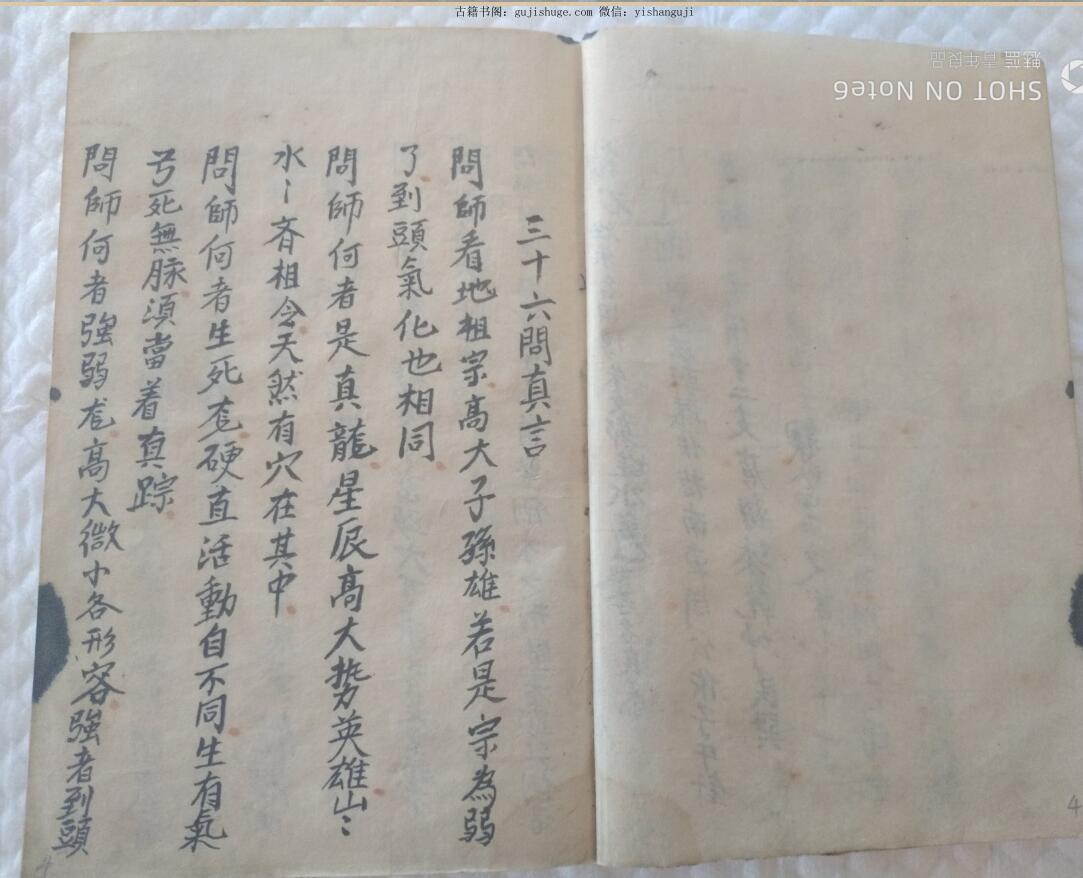 古籍书阁：gujishuge.com 微信：yishanguji
魅蓝 青年良品
SHOT ON Note6
三十六問真言
問師看地祖宗高大子孫雄若是宗為弱
了到頭氣化也相同
問師何者是真龍星辰高大势英雄山〻
水〻斉相令天然有穴在其中
問師何者生死龙硬直活動自不同生有氣
兮死無脉須當着真踪
問師何者強弱龙高大微小各形容強者到頭
4
4